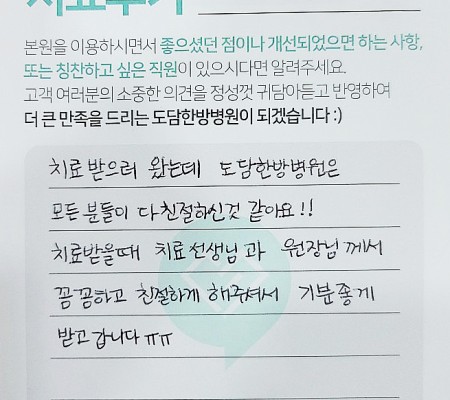 치료후기
본원을 이용하시면서 좋으셨던 점이나 개선되었으면 하는 사항,
또는 칭찬하고 싶은 직원이 있으시다면 알려주세요.
고객 여러분의 소중한 의견을 정성껏 귀담아듣고 반영하여
더 큰 만족을 드리는 도담한방병원이 되겠습니다 :)
치료 받으러 왔는데 도담한방병원은
모든 분들이 다 친절하신것 같아요!!
치료받을때 치료선생님과 원장님께서
꼼꼼하고 친절하게 해주셔서 기분좋게
받고 갑니다 ㅠㅠ